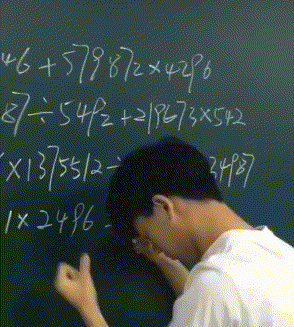 46 + 579872×4296
87÷5492+219673×542
×1375512÷ 34987
1×2496 -